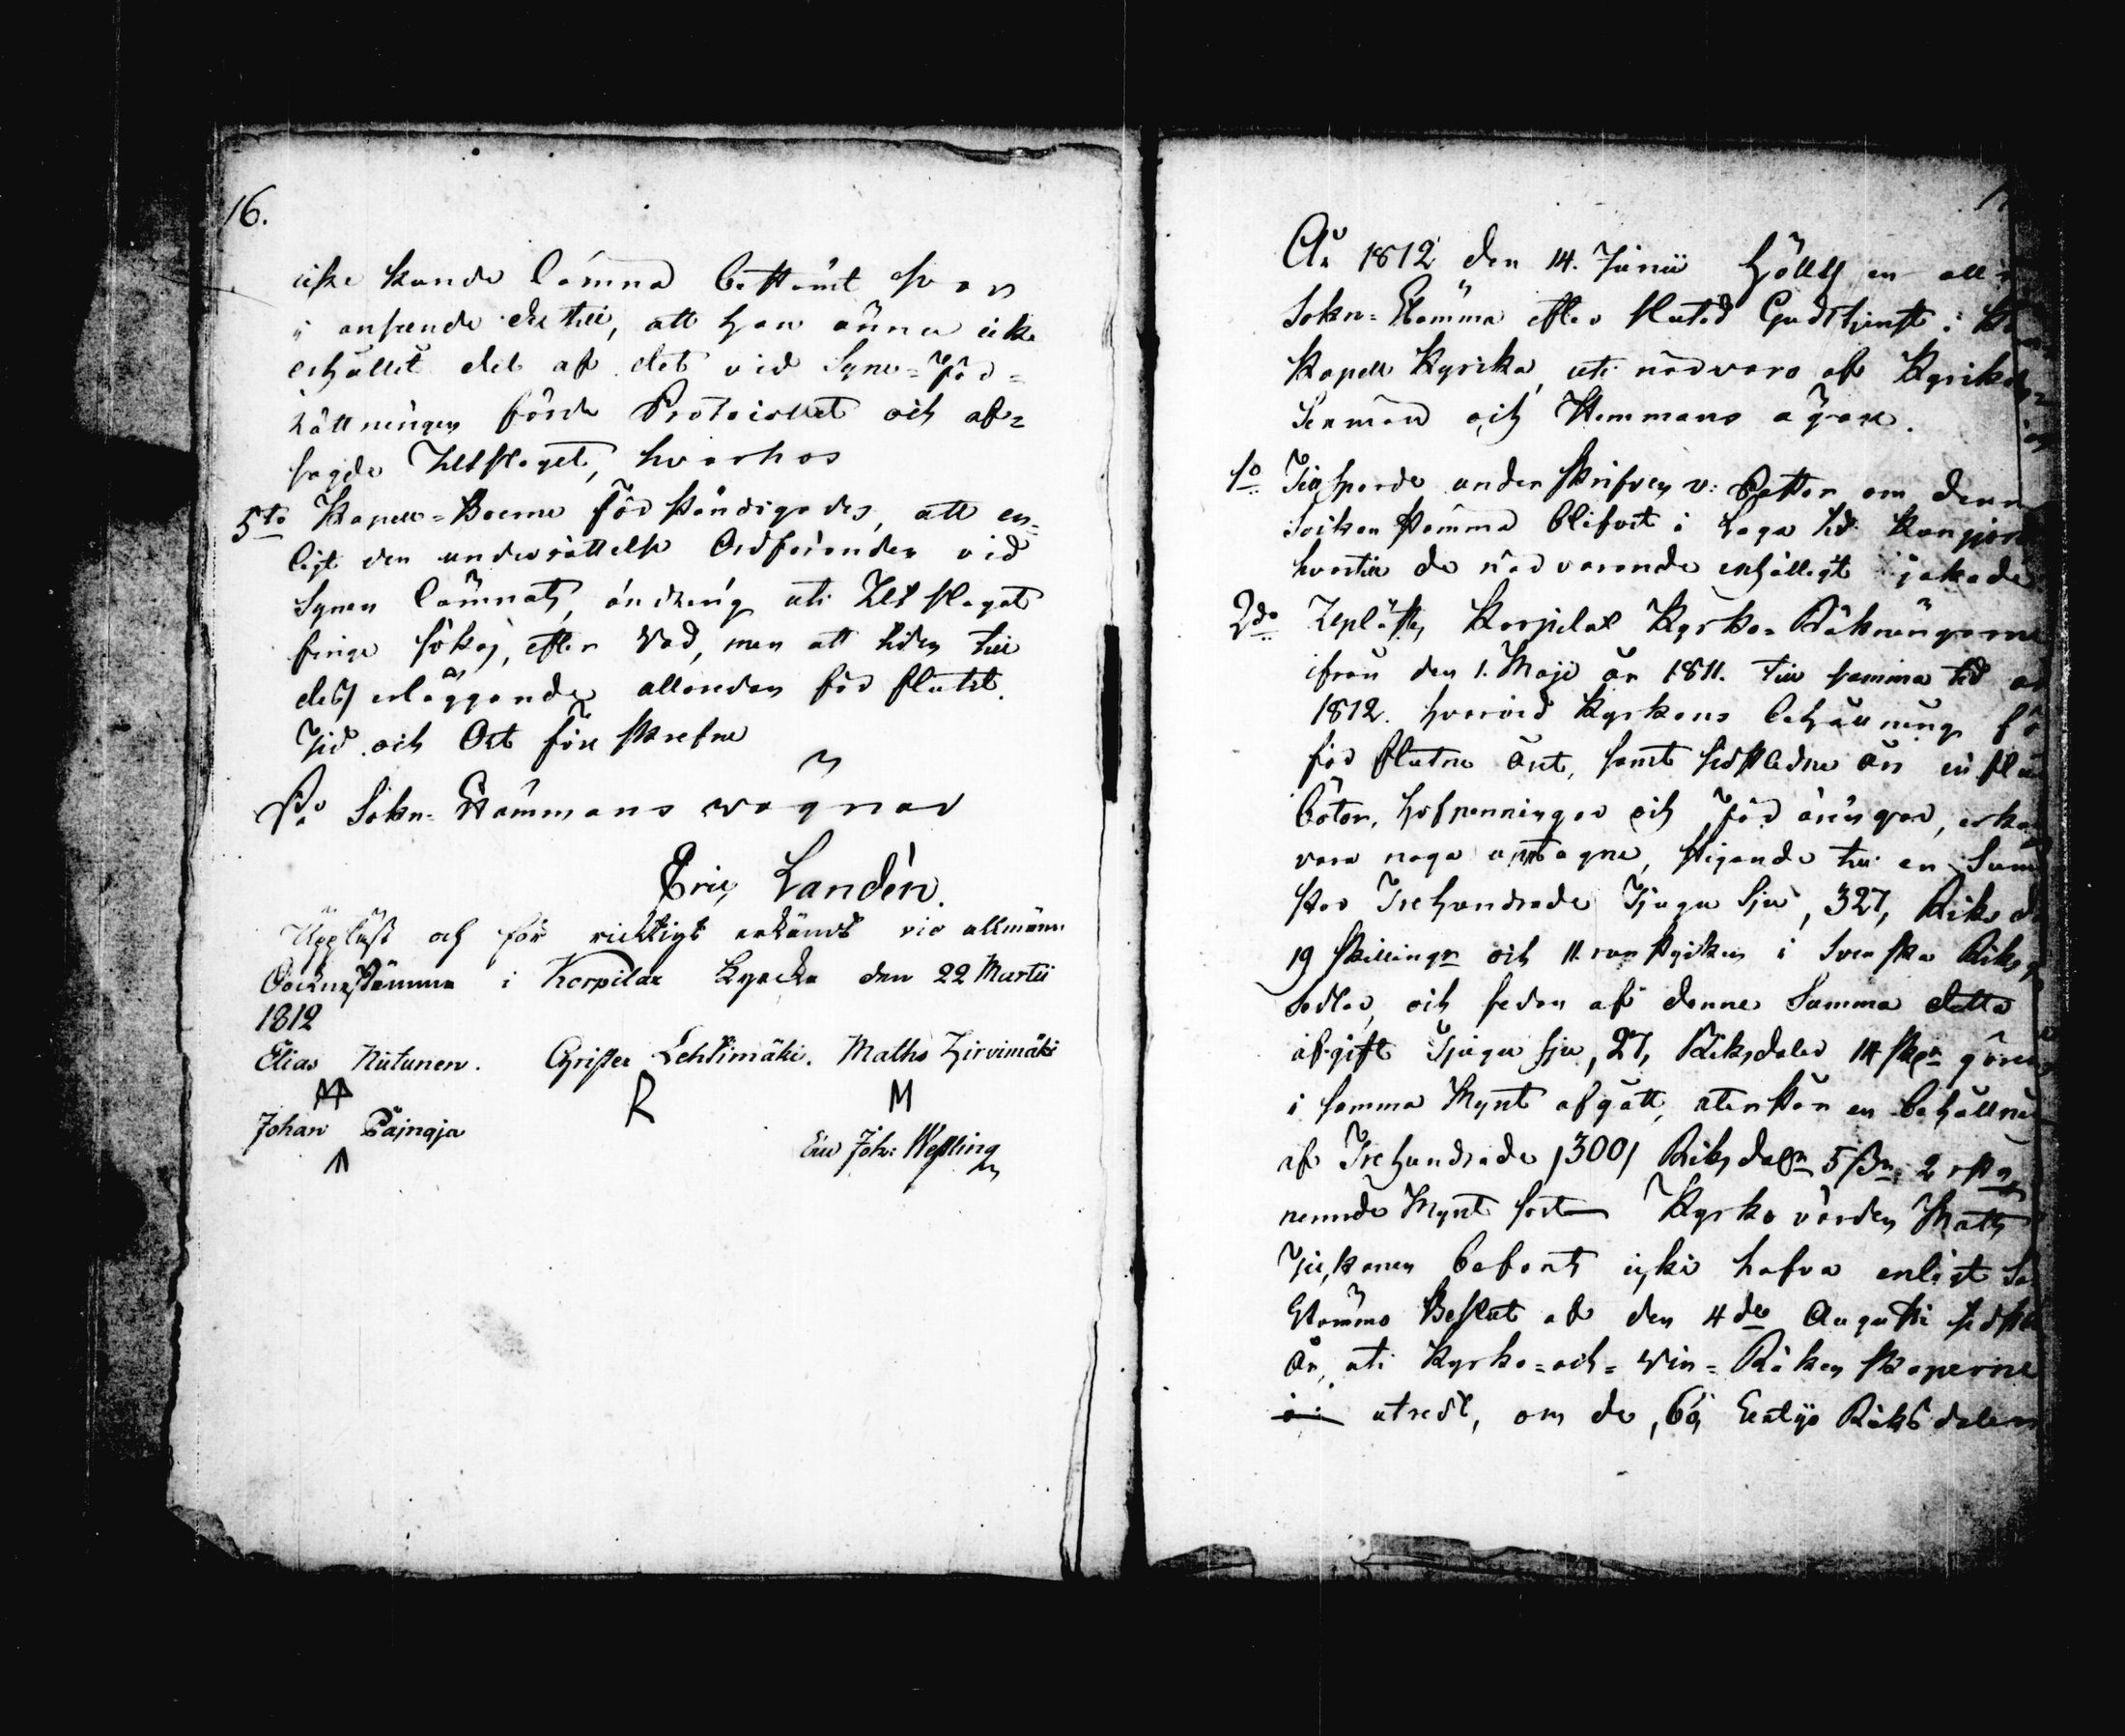 16.
icke kunde lämna bestämt svar
i anseende dertill, att han ännu icke
erhållit del af det vid Syne-För-
rättningen förde Protocollet och af-
sagde Utslaget, hvarhos
5to Kapell-Boerne förständigades, att en-
ligt den underrättelse Ordföranden vid
Synen lämnat, ändring uti Utslaget
finge sökas, efter Vad, men att tiden till
dess erläggande allaredan förflutit.
Tid och Ort före skrefne
På Sokn-Stämmans vägnar
Eric Landén.
Uppläst och för richtigt erkändt vid allmänn
Socknestämma i Korpilax Kyrcka den 22 Martii
1812
Elias Niitunen. Christer Lehtimäki. Maths Hirvimäki
Johan Päjnäja
R
M
Eric Joh: Wessling
År 1812 den 14. Junii hölls en all
Sokn-Stämma efter slutad Gudstjenst i
Kapell Kyrcka, uti närvaro af Kyrko
Sexmän och Hemmans ägare.
1o Tillsporde underskrifven v: Pastor om denn
Socken stämma blifvit i Laga tid kungjord
hvartill de närvarande enhälligt jakade
2do Uplästes Korpilax Kyrko-Räkningarne
ifrån den 1. Maji år 1811. till samma tid
1812. hvarvid Kyrkans behållning
för flutne året, samt sidstledne års
böter, håfpenningar och föräringar,
vara noga antagne, stigande till en Sum
stor Trehundrade Tjugu Sju, 327, Riksd
19 skillingr och 11. runstycken i Svenska Riksg
sedlar, och sedan af denne Summa detta
afgift Tjugu sju, 27, Riksdaler 14 skgr
i samma Mynt afgått, återstår en behålln
af Trehundrade /300/ Riksdalr 5 ßr 2 rst
nemnde Mynt sort Kyrkovärden Matts
befants icke hafva enligt So
Stämmo Beslut af den 4de Augusti sidstl
År, uti Kyrko-och-Vin-Räkenskaperne
utredt, om de, 60, Sextijo Riksdaler